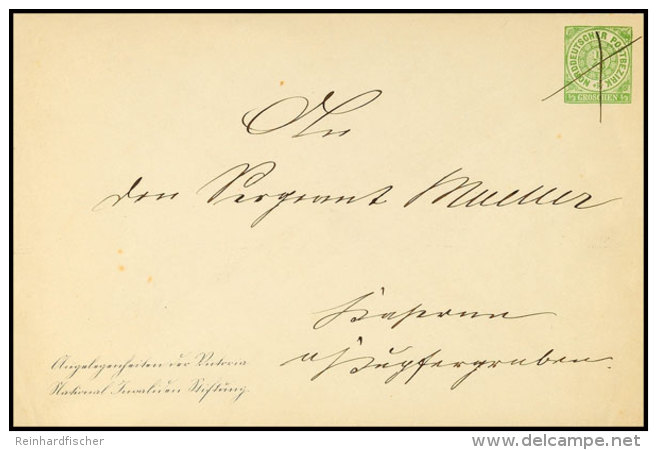 NORDDEUTSCHER POSTBEZIRK
1/2 GROSCHEN 1/2
An
den Sergeant Mueller
Kaserne
a/Kupfergraben.
Angelegenheiten der Victoria
National Invaliden Stiftung.
Reinhardfischer
delcampe.net